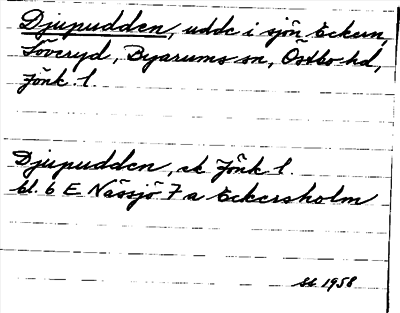 Djupudden, udde i sjön Eckern,
Löveryd, Byarums sn, Östbo hd,
Jönk l.
Djupudden, ek Jönk l.
bl. 6 E Nässjö 7 a Eckersholm
1958